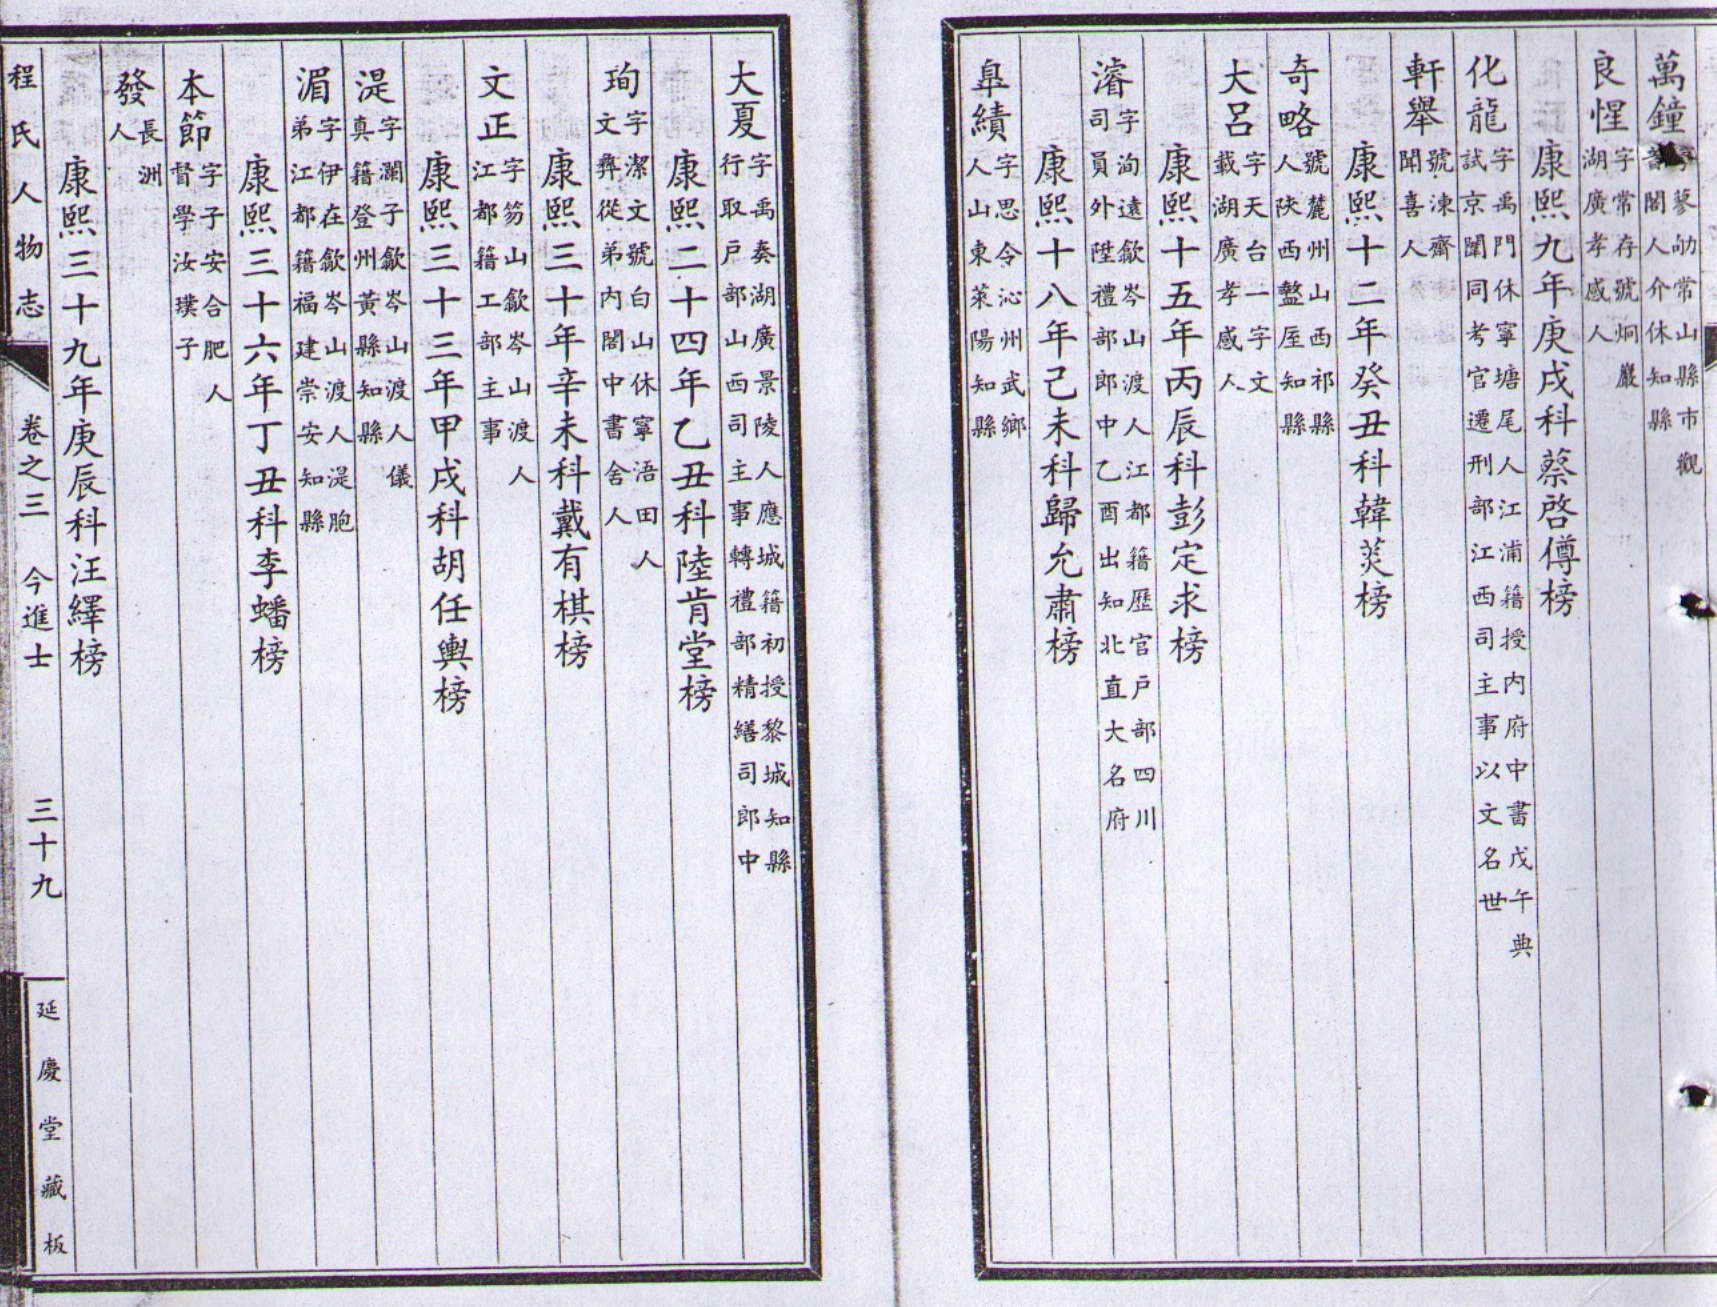 萬鐘
字蓼劬常山縣市觀
書閣人介休知縣
良惺
字常存號炯巖
湖廣孝感人
康熙九年庚戌科蔡啓僔榜
化龍
字禹門休寧塘尾人江浦籍授內府中書戊午典
試京闈同考官遷刑部江西司主事以文名世
軒舉
號涷齋
聞喜人
康熙十二年癸丑科韓菼榜
奇略
號麓州山西祁縣
人陝西盩厔知縣
大呂
字天台一字文
載湖廣孝感人
康熙十五年丙辰科彭定求榜
濬
字洵遠歙岑山渡人江都籍歷官戶部四川
司員外陞禮部郎中乙酉出知北直大名府
康熙十八年己未科歸允肅榜
臯績
字思令沁州武鄉
人山東萊陽知縣
大夏
字禹奏湖廣景陵人應城籍初授黎城知縣
行取戶部山西司主事轉禮部精繕司郎中
康熙二十四年乙丑科陸肯堂榜
珣
字潔文號白山休寧浯田人
文彝從弟內閣中書舍人
康熙三十年辛未科戴有棋榜
文正
字笏山歙岑山渡人
江都籍工部主事
康熙三十三年甲戌科胡任輿榜
湜
字瀾子歙岑山渡人儀
真籍登州黃縣知縣
湄
字伊在歙岑山渡人湜胞
弟江都籍福建崇安知縣
康熙三十六年丁丑科李蟠榜
本節
字子安合肥人
督學汝璞子
發
長洲
人
康熙三十九年庚辰科汪繹榜
程氏人物志 卷之三 今進士 三十九 延慶堂藏板